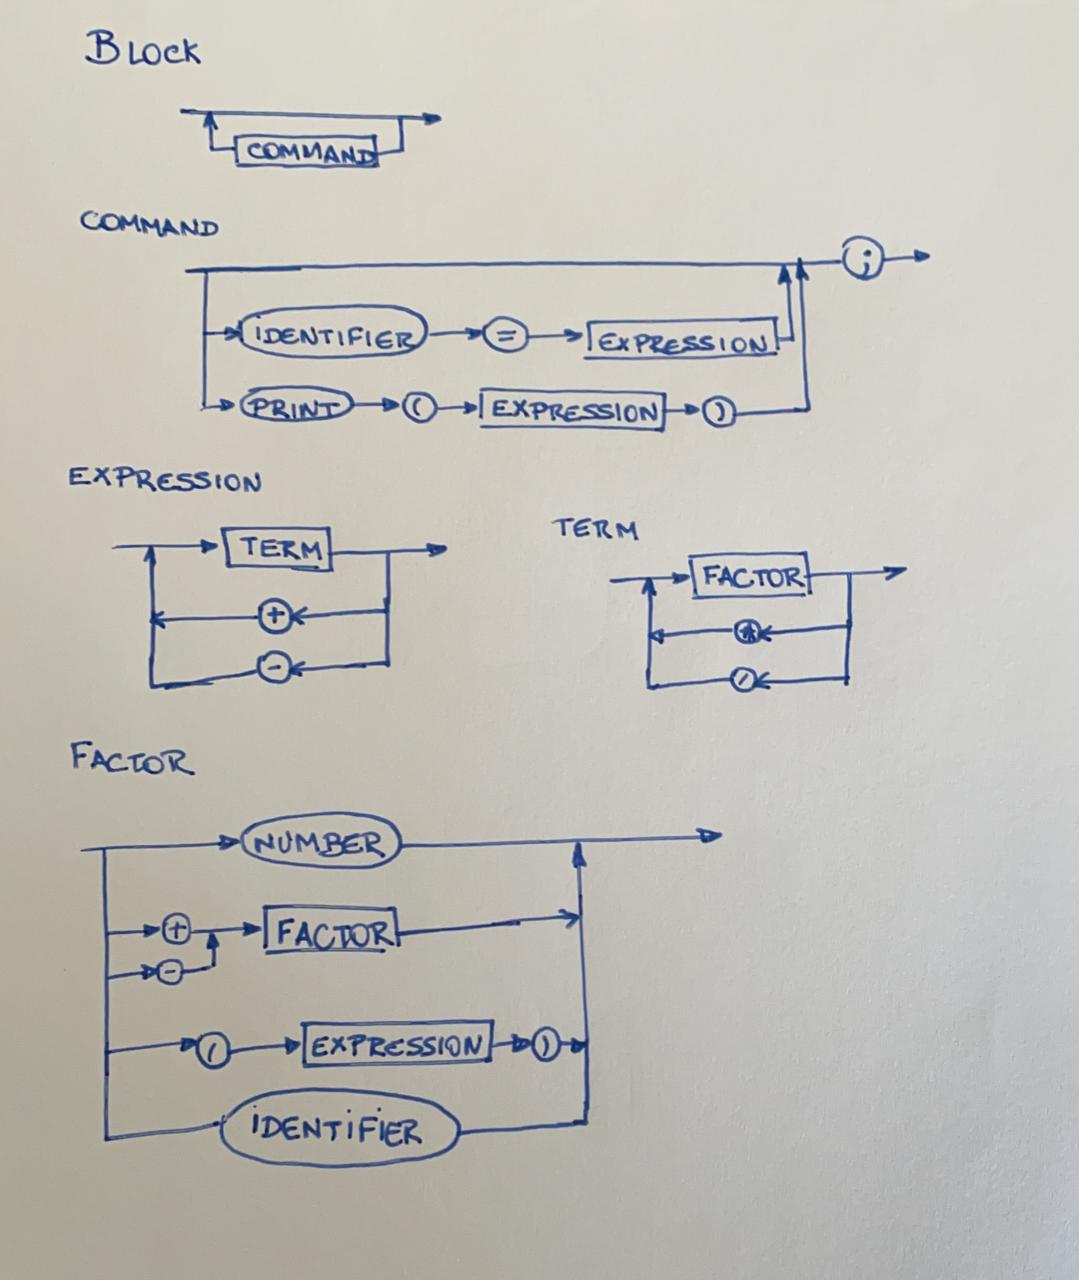 BLOCK
COMMAND
COMMAND
;
IDENTIFIER = EXPRESSION
PRINT ( EXPRESSION )
EXPRESSION
TERM
TERM
FACTOR
+
*
-
/
FACTOR
NUMBER
+ FACTOR
-
( EXPRESSION )
IDENTIFIER